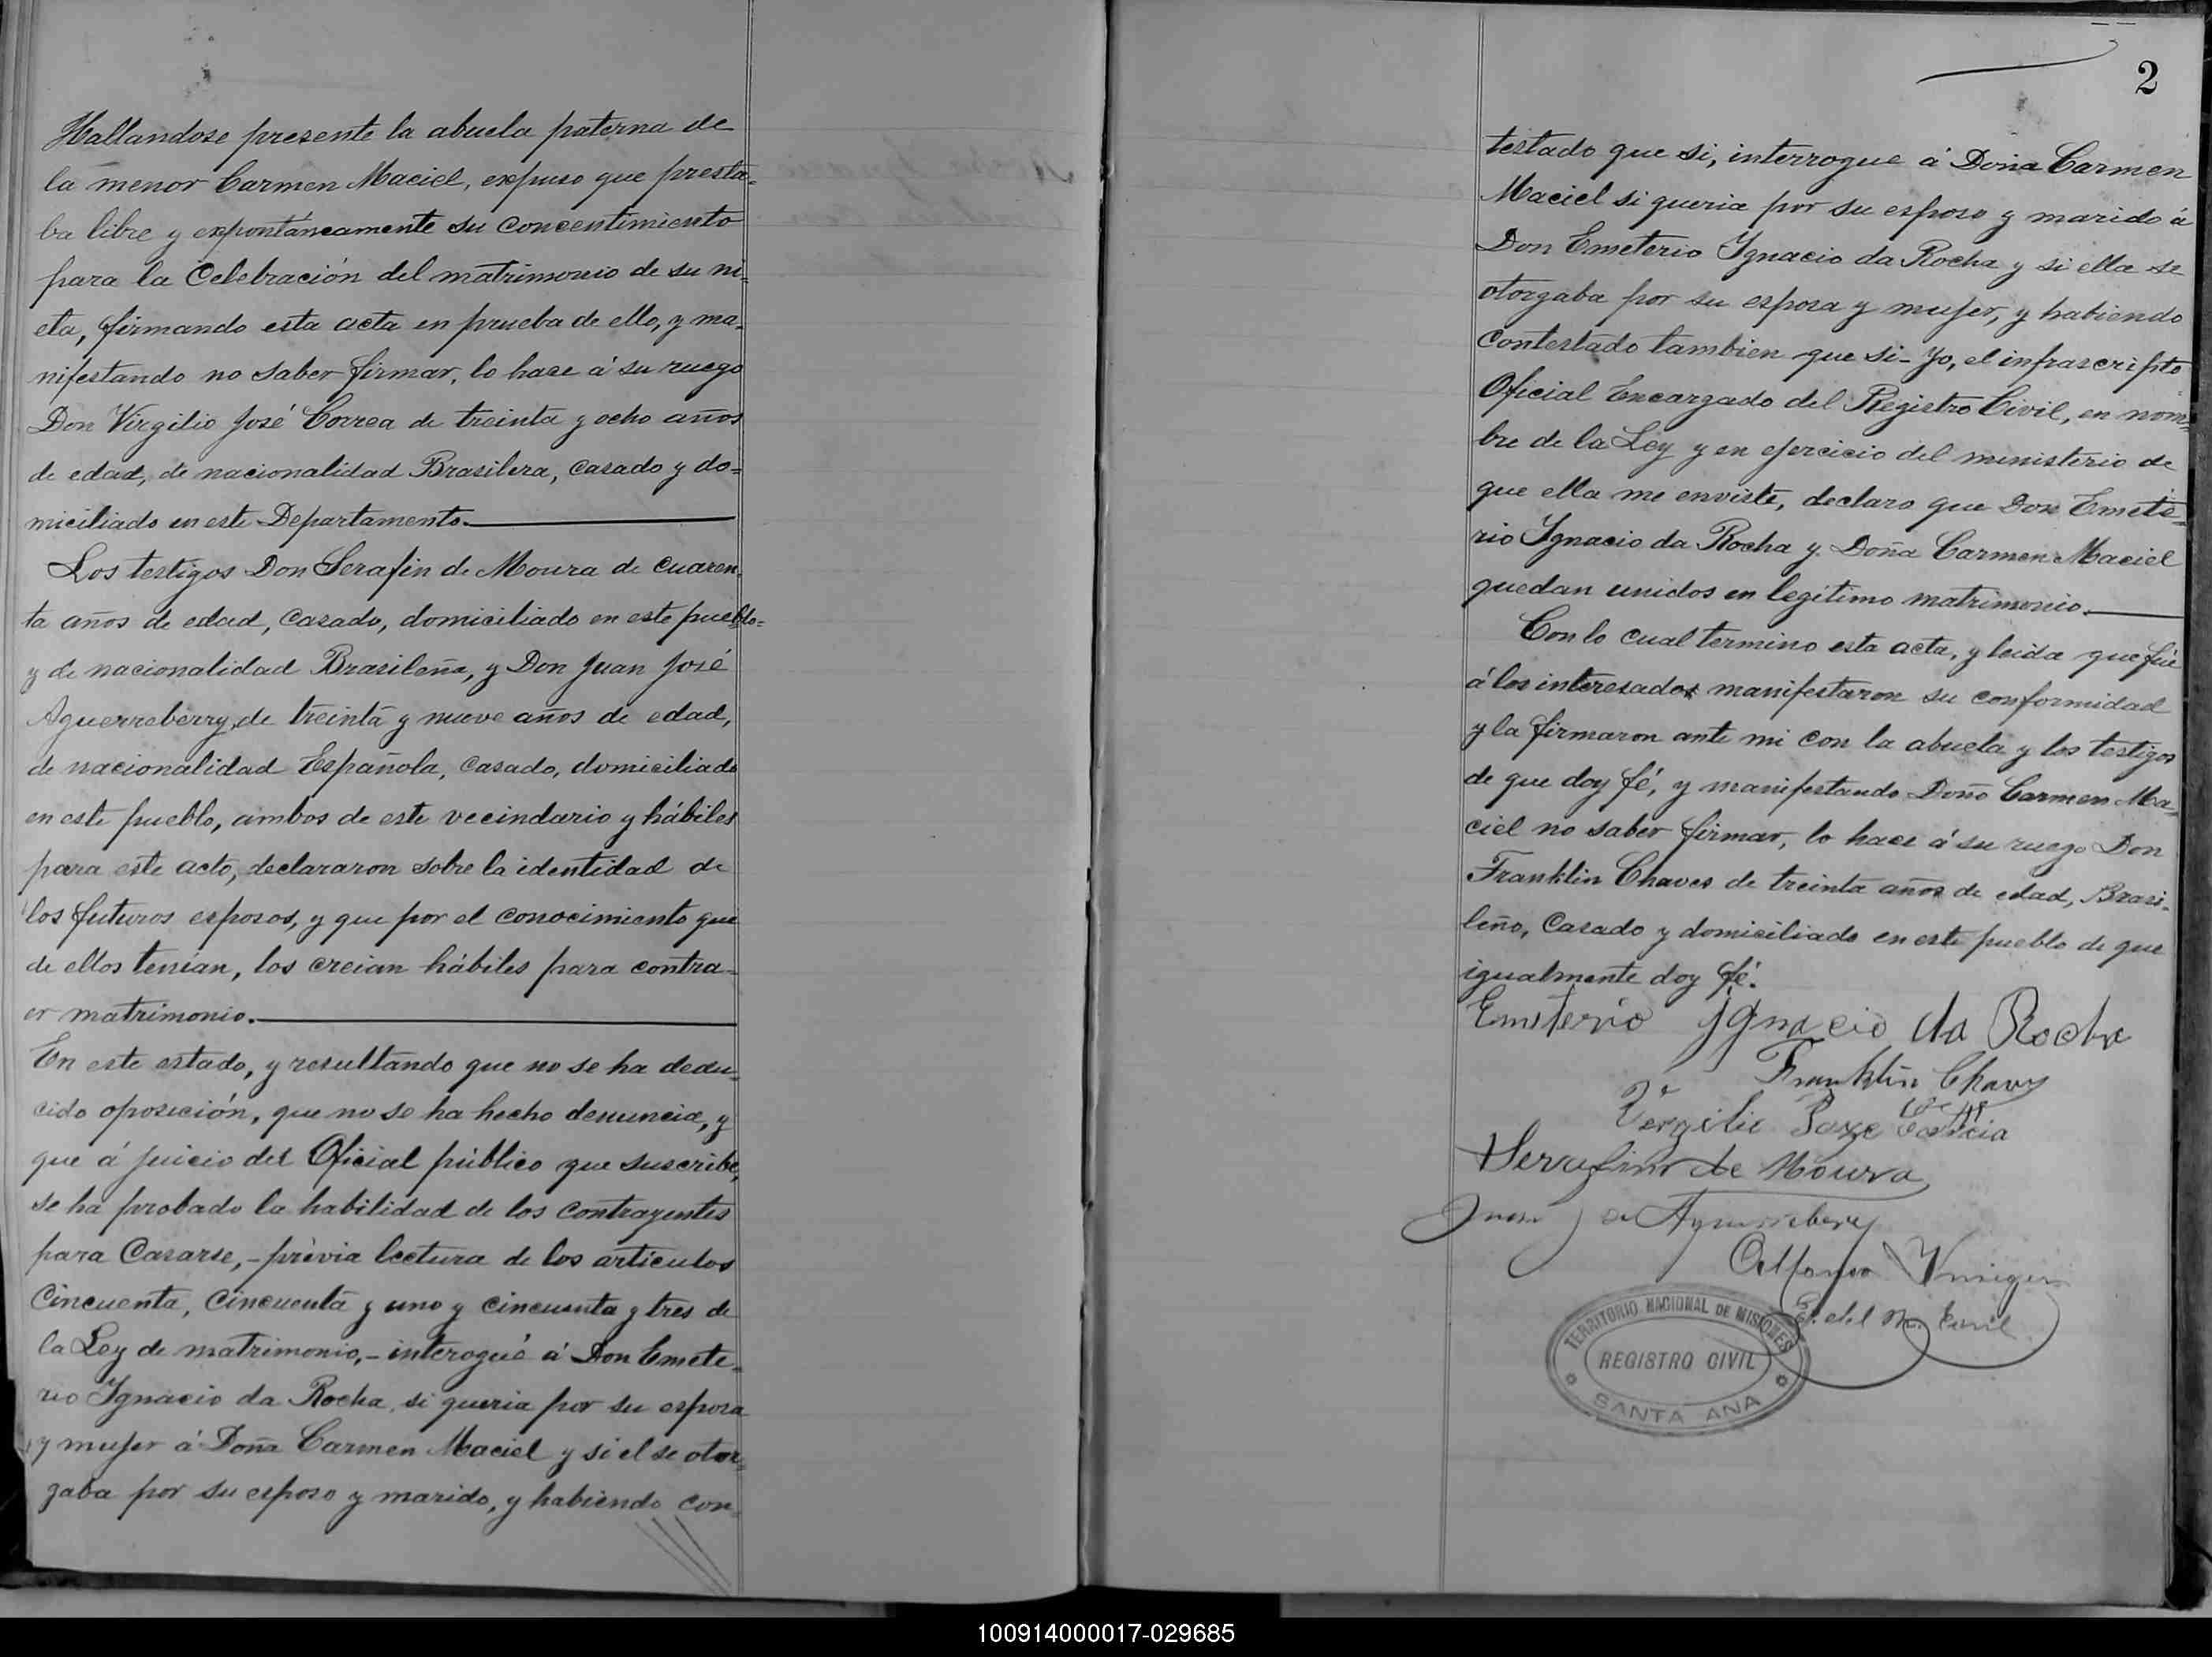 Hallandose presente la abuela paterna de
la menor Carmen Maciel, expuso que presta=
ba libre y expontáneamente su concentimiento
para la Celebración del matrimonio de su ni=
eta, firmando esta acta en prueba de ello, y ma=
nifestando no saber firmar, lo hace á su ruego
Don Virgilio José Correa de treinta y ocho años
de edad, de nacionalidad Brasilera, casado y do=
miciliado en este Departamento.
Los testigos Don Serafin de Moura de cuaren=
ta años de edad, casado, domiciliado en este pueblo=
y de nacionalidad Brasileña, y Don Juan José
Aguerreberry, de treinta y nueve años de edad,
de nacionalidad Española, casado, domiciliado
en este pueblo, ambos de este vecindario y hábiles
para este acto, declararon sobre la identidad de
los futuros esposos, y que por el conocimiento que
de ellos tenian, los creian hábiles para contra=
er matrimonio.
En este estado, y resultando que no se ha dedu=
cido oposición, que no se ha hecho denuncia, y
que á juicio del Oficial público que suscribe,
se ha probado la habilidad de los contrayentes
para Casarse,- prévia lectura de los articulos
Cincuenta, cincuenta y uno y cincuenta y tres de
la Ley de matrimonio,- interogué á Don Emete=
rio Ignacio da Rocha, si queria por su esposa
y mujer á Doña Carmen Maciel y si el se otor=
gaba por su esposo y marido, y habiendo con=
2
testado que si, interrogue á Doña Carmen
Maciel si queria por su esposo y marido á
Don Emeterio Ignacio da Rocha y si ella se
otorgaba por su esposa y mujer, y habiendo
contestado tambien que si- Yo, el infrascripto
Oficial Encargado del Registro Civil, en nom=
bre de la Ley y en ejercicio del ministerio de
que ella me enviste, declaro que Don Emete=
rio Ignacio da Rocha y Doña Carmen Maciel
quedan unidos en legítimo matrimonio.
Con lo cual termino esta acta, y leida que fué
á los interesados manifestaron su conformidad
y la firmaron ante mi con la abuela y los testigos
de que doy fé, y manifestando Doña Carmen Ma=
ciel no saber firmar, lo hace á su ruego Don
Franklin Chaves de treinta años de edad, Brasi=
leño, Casado y domiciliado en este pueblo de que
igualmente doy fé.
Emeterio Ignacio da Rocha
Franklin Chaves
Vergilio Joze
Serafim de Moura
Juan J de Aguerreberry
Alfonso
E. del R. Civil
TERRITORIO NACIONAL DE MISIONES
REGISTRO CIVIL
SANTA ANA
100914000017-029685